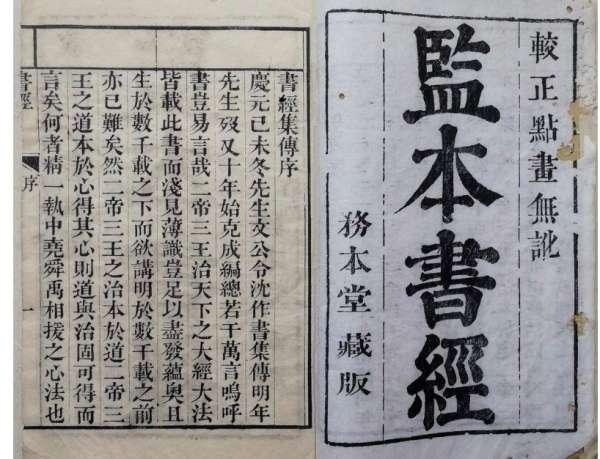 較正點畫無訛
監本書經
務本堂藏版
書經集傳序
慶元己未冬先生文公令沈作書集傳明年
先生歿又十年始克成編總若干萬言嗚呼
書豈易言哉二帝三王治天下之大經大法
皆載此書而淺見薄識豈足以盡發蘊奧且
生於數千載之下而欲講明於數千載之前
亦已難矣然二帝三王之治本於道二帝三
王之道本於心得其心則道與治固可得而
言矣何者精一執中堯舜禹相授之心法也
書經 序 一